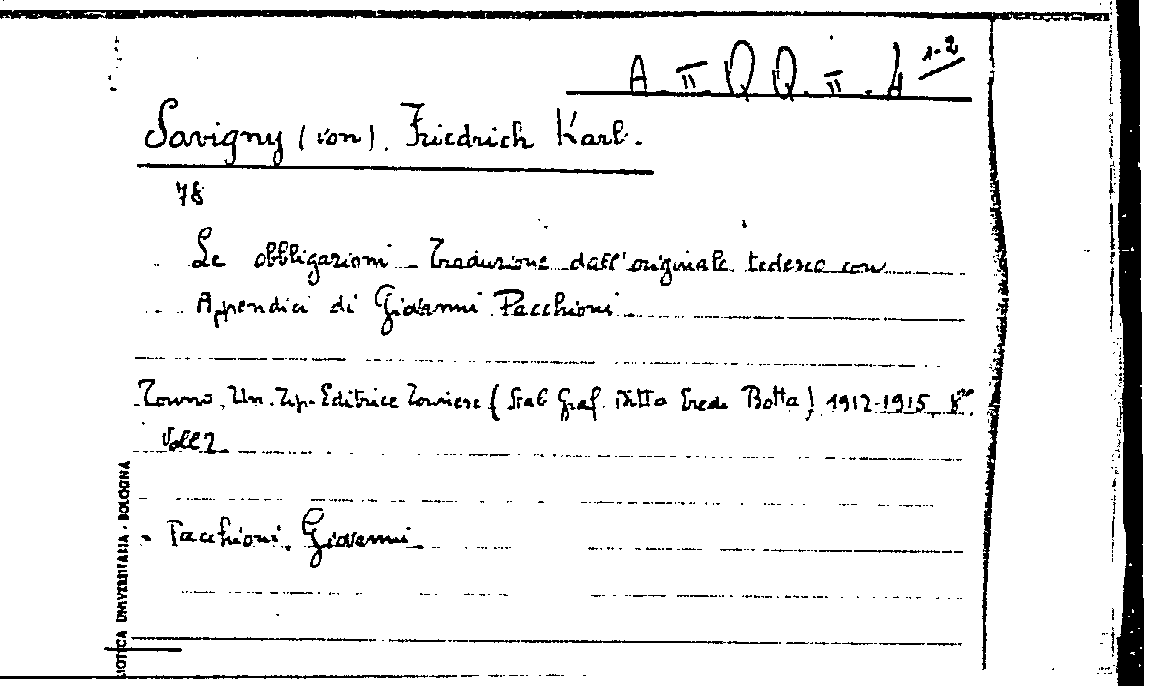 A. II. Q Q. II. 4 1-2
Savigny (von). Friedrich Karl.
78
Le obbligazioni - Traduzione dall'originale tedesco con
Appendici di Giovanni Pacchioni
Torino, Un. Tip. Editrice Torinese (Stab. Graf. Ditta Eredi Botta) 1912-1915, 8°.
Voll 2
- Pacchioni. Giovanni.
IOTECA UNIVERSITARIA - BOLOGNA